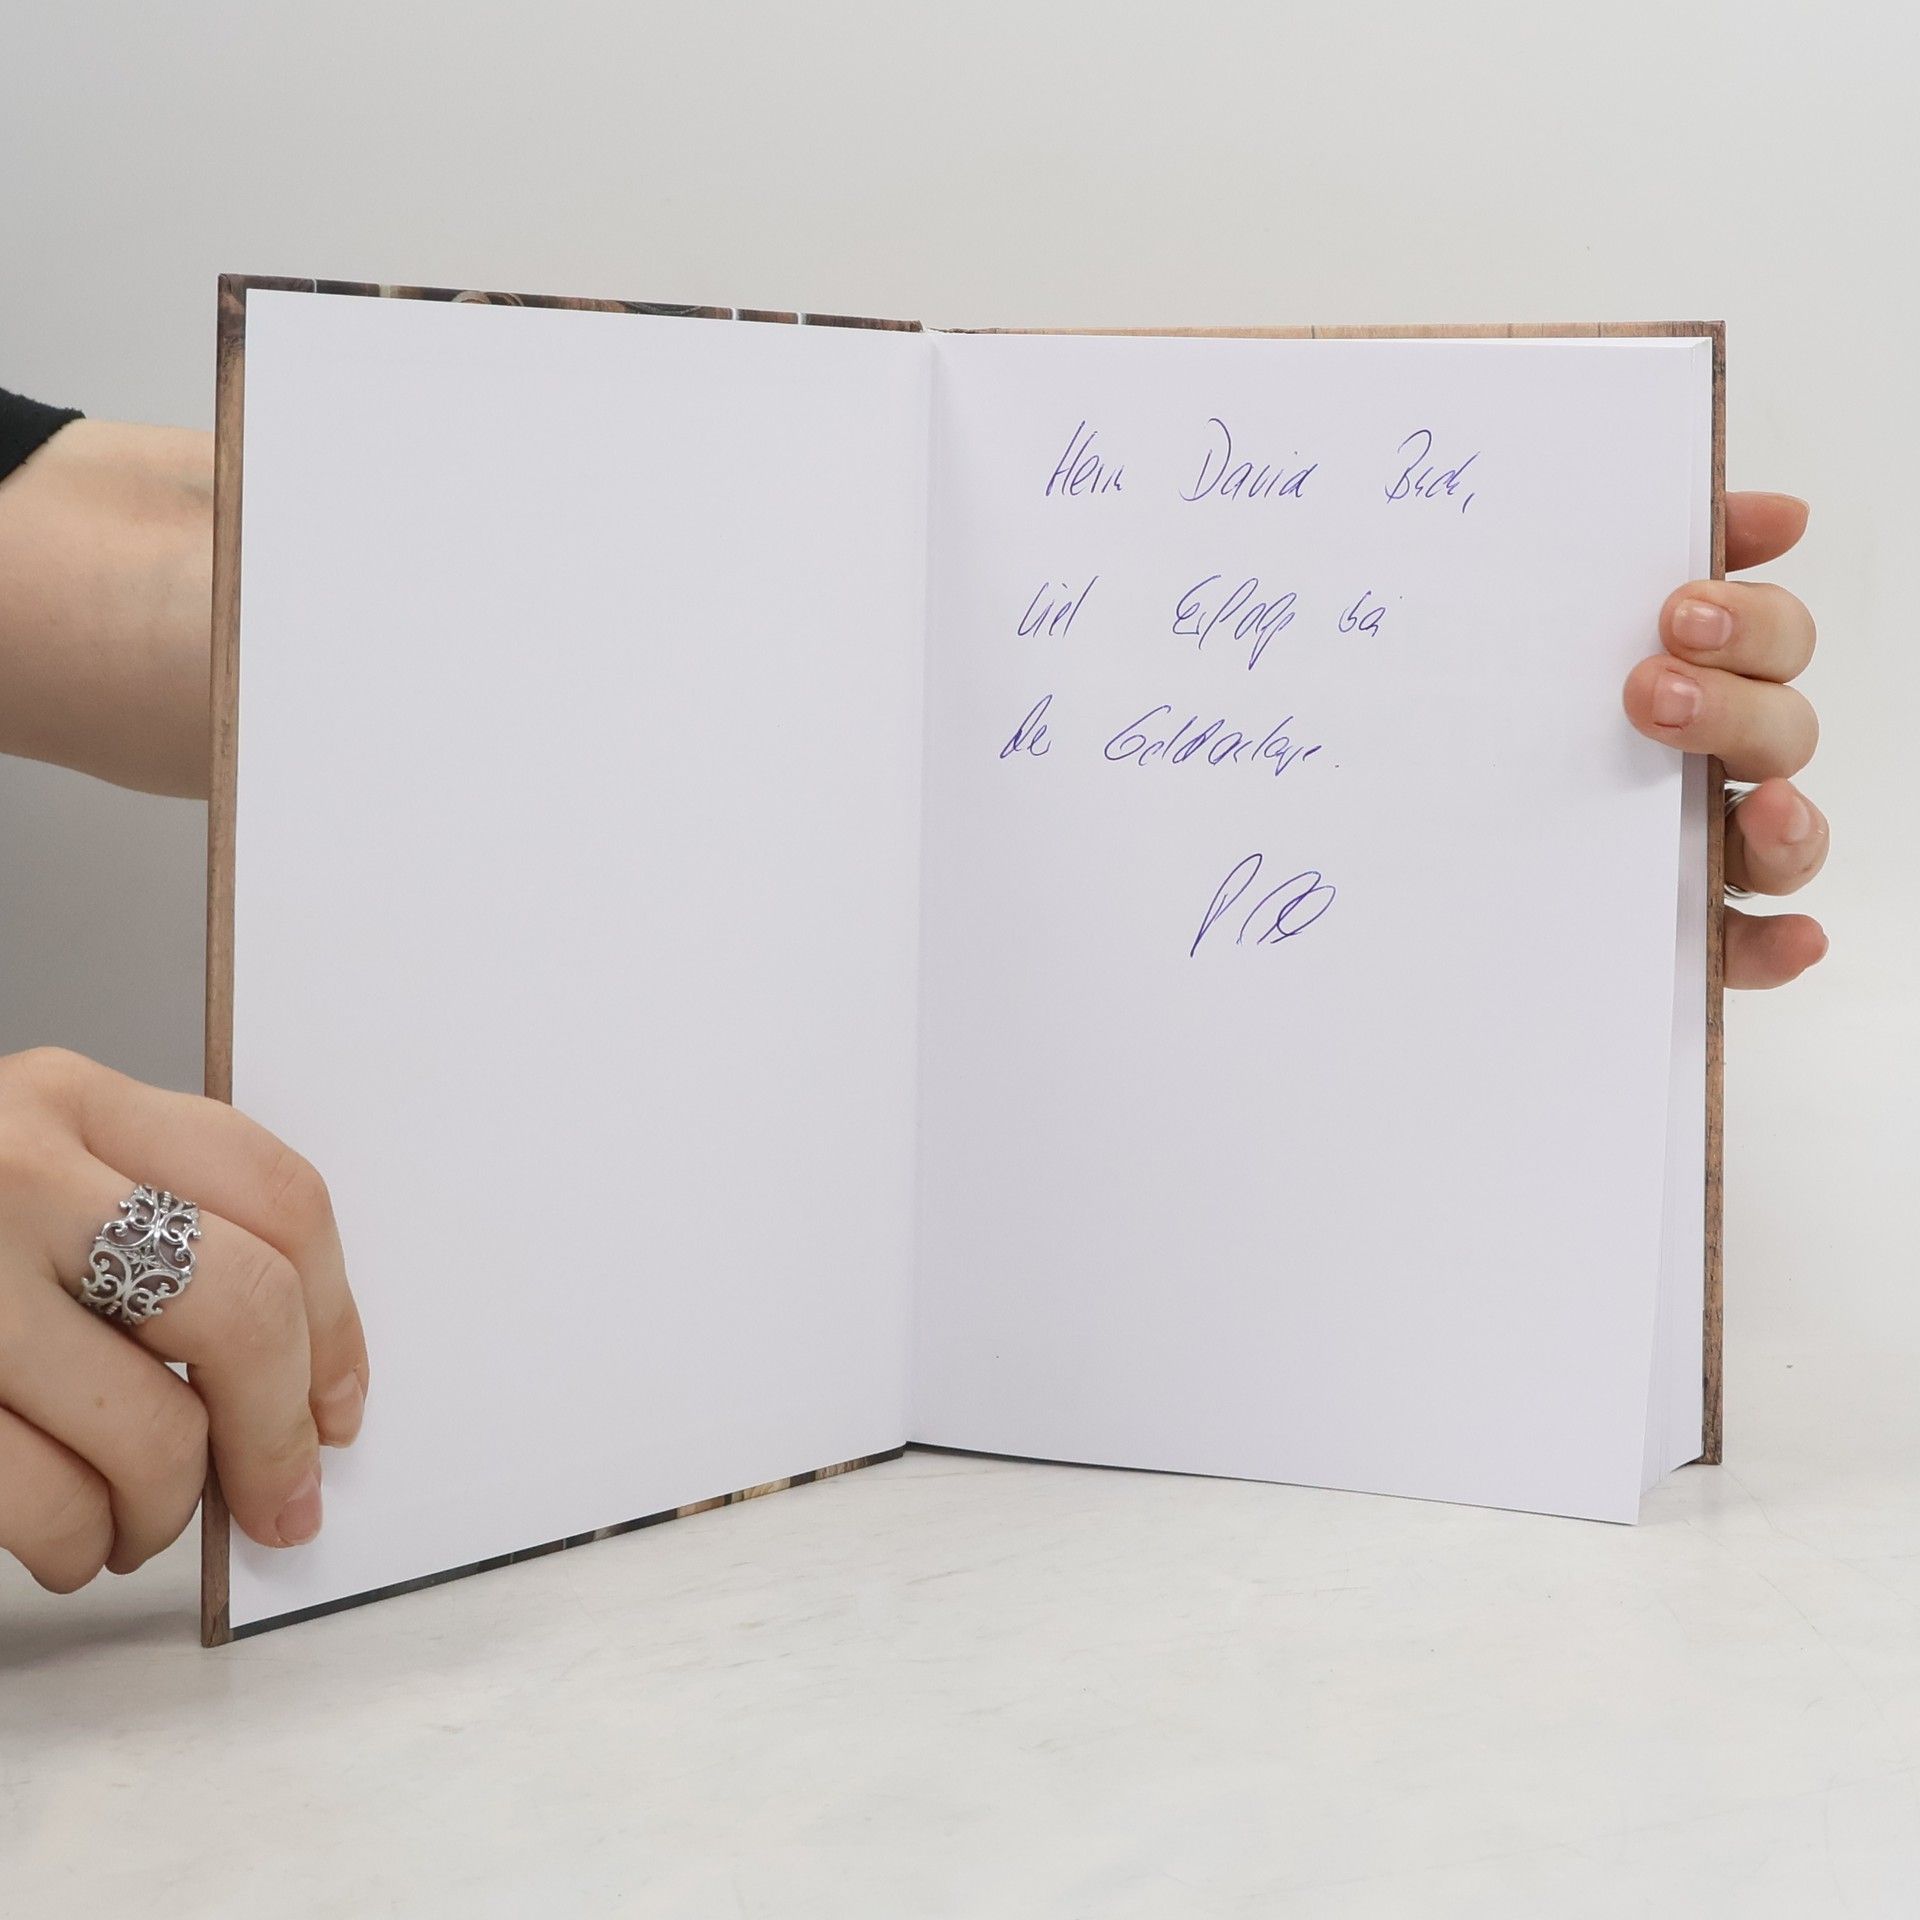 Herrn David
viel Erfolg bei
der Geldanlage.